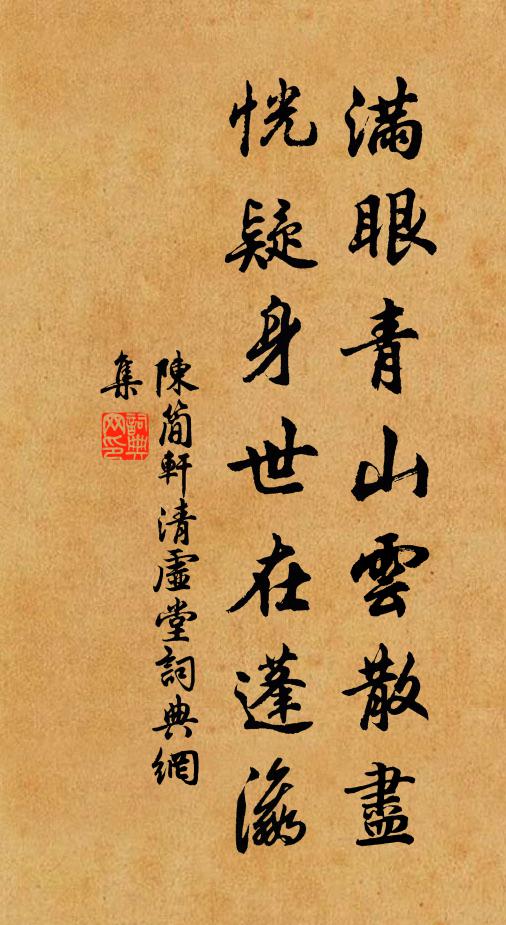 滿眼青山雲散盡
恍疑身世在蓬瀛
陳簡軒清虛堂詞典網
集
詞典网印